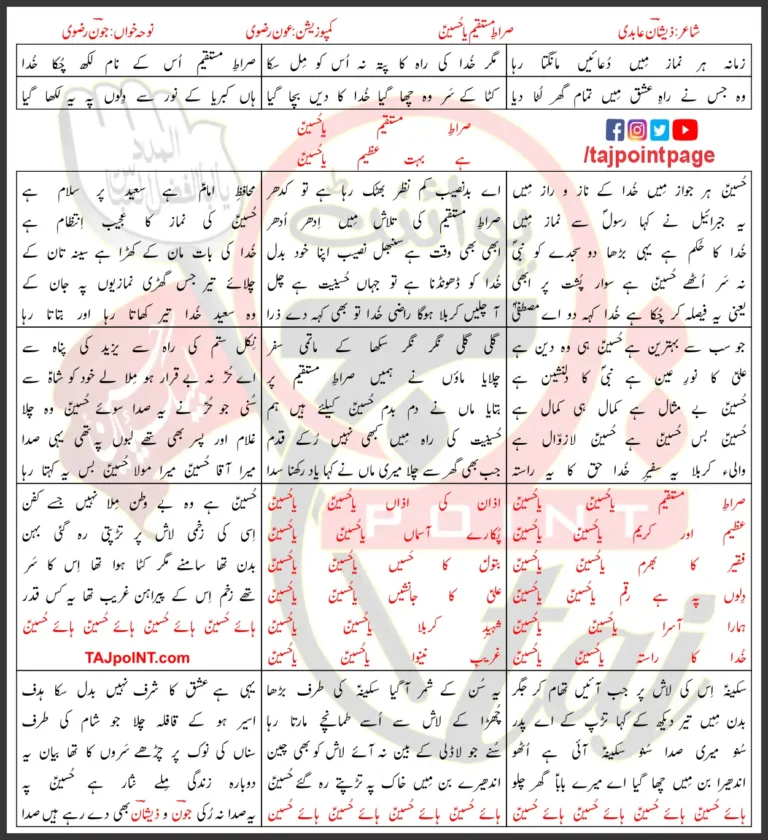 شاعر: ذیشان عابدی
صراطِ مستقیم یا حُسینؑ
کمپوزیشن: عون رضوی
نوحہ خواں: جون رضوی
زمانہ ہر نماز میں دُعائیں مانگتا رہا
مگر خُدا کی راہ کا پتہ نہ اُس کو مِل سکا
صراطِ مستقیم اُس کے نام لکھ چُکا خُدا
وہ جس نے راہِ عشق مِیں تمام گھر لُٹا دیا
کٹا کے سَر وہ چھا گیا خُدا کا دیں بچا گیا
ہاں کبریا کے نور سے دِلوں پہ یہ لکھا گیا
صراطِ مستقیم یا حُسینؑ
ہے بہت عظیم یا حُسینؑ
/tajpointpage
حُسینؑ ہر جواز میں خُدا کے ناز و راز میں
یہ جبرائیل نے کہا رسولؐ سے نماز میں
خُدا کا حُکم ہے یہی بڑھا دو سجدے کو نبیؐ
نہ سَر اُٹھے حُسینؑ ہے سوار پُشت پر ابھی
یعنی یہ فیصلہ کر چُکا ہے خُدا کہہ دو اے مصطفیٰؐ
اے بدنصیب کم نظر بھٹک رہا ہے تو کدھر
صراطِ مستقیم کی تلاش مِیں اِدھر اُدھر
ابھی بھی وقت ہے سنبھل نصیب اپنا خود بدل
خُدا کو ڈھونڈنا ہے تو جہاں حُسینیت ہے چل
آ چلیں کربلا ہوگا راضی خُدا تو بھی کہہ دے ذرا
محافظِ امامؑ ہے سعید پر سلام ہے
حُسینؑ کی نماز کا عجیب اِنتظام ہے
خُدا کی بات مان کے کھڑا ہے سینہ تان کے
چلائے تیر جس گھڑی نمازیوں پہ جان کے
وہ سعید خُدا تیر کھاتا رہا اور بتاتا رہا
جو سب سے بہترین ہے حُسینؑ ہی وہ دین ہے
علیؑ کا نورِ عین ہے نبیؐ کا دِلنشین ہے
حُسینؑ بے مثال ہے کمال ہی کمال ہے
حُسینؑ بس حُسینؑ ہے حُسینؑ لازوال ہے
والیء کربلا یہ سفیرِ خُدا حق کا یہ راستہ
گلی گلی نگر نگر سکھا کے ماتمی سفر
چلایا ماؤں نے ہمیں صراطِ مستقیم پر
بتایا ماں نے دم بدم حُسینؑ کیلئے ہیں ہم
حُسینیت کی راہ مِیں کبھی نہیں رُکے قدم
جب بھی گھر سے چلا میری ماں نے کہا یاد رکھنا سدا
نِکل ستم کی راہ سے یزید کی پناہ سے
اے حُرؑ نہ بے قرار ہو مِلا لے خود کو شاہؑ سے
سُنی جو حُرؑ نے یہ صدا سوئے حُسینؑ وہ چلا
غلام اور پسر بھی تھے لبوں پہ تھی یہی صدا
میرا آقا حُسینؑ میرا مولا حُسینؑ بس یہ کہتا رہا
صراطِ مستقیم یا حُسینؑ یا حُسینؑ
عظیم اور کریم یا حُسینؑ یا حُسینؑ
فقیر کا بھرم یا حُسینؑ یا حُسینؑ
دِلوں پہ ہے رقم یا حُسینؑ یا حُسینؑ
ہمارا آسرا یا حُسینؑ یا حُسینؑ
خُدا کا راستہ یا حُسینؑ یا حُسینؑ
اذان کی اذاں یا حُسینؑ یا حُسینؑ
پُکارے آسماں یا حُسینؑ یا حُسینؑ
بتولؑ کا حُسیں یا حُسینؑ یا حُسینؑ
علیؑ کا جانشیں یا حُسینؑ یا حُسینؑ
شہیدِ کربلا یا حُسینؑ یا حُسینؑ
غریبِ نینوا یا حُسینؑ یا حُسینؑ
حُسینؑ ہے وہ بے وطن مِلا نہیں جسے کفن
اِسی کی زخمی لاش پر تڑپتی رہ گئی بہن
بدن تھا سامنے مگر کٹا ہوا تھا اِس کا سَر
تھے زخم اِس کے پیراہن غریب تھا یہ کس قدر
ہائے حُسینؑ ہائے حُسینؑ ہائے حُسینؑ ہائے حُسینؑ
TAJpoiNT.com
سکینہؑ اِس کی لاش پر جب آئیں تھام کر جگر
بدن مِیں تیر دیکھ کے کہا تڑپ کے اے پدر
سُنو میری صدا سُنو سکینہؑ آئی ہے اُٹھو
اندھیرا بن مِیں چھا گیا اے میرے باباؑ گھر چلو
ہائے حُسینؑ ہائے حُسینؑ ہائے حُسینؑ ہائے حُسینؑ
یہ سُن کے شمر آگیا سکینہؑ کی طرف بڑھا
چُھڑا کے لاش سے اُسے طمانچے مارتا رہا
سُنے جو لاڈلی کے بین نہ آئے لاش کو بھی چین
اندھیرے بن مِیں خاک پہ تڑپتے رہ گئے حُسینؑ
ہائے حُسینؑ ہائے حُسینؑ ہائے حُسینؑ ہائے حُسینؑ
یہی ہے عشق کا شرف نہیں بدل سکا ہدف
اسیر ہو کے قافلہ چلا جو شام کی طرف
سناں کی نوک پر چڑھے سَروں کا تھا بیان یہ
دوبارہ زندگی مِلے نثار ہے حُسینؑ پہ
یہ صدا نہ رُکی جون و ذیشان بھی دے رہے ہیں صدا
پوائنٹ
POINT
taj